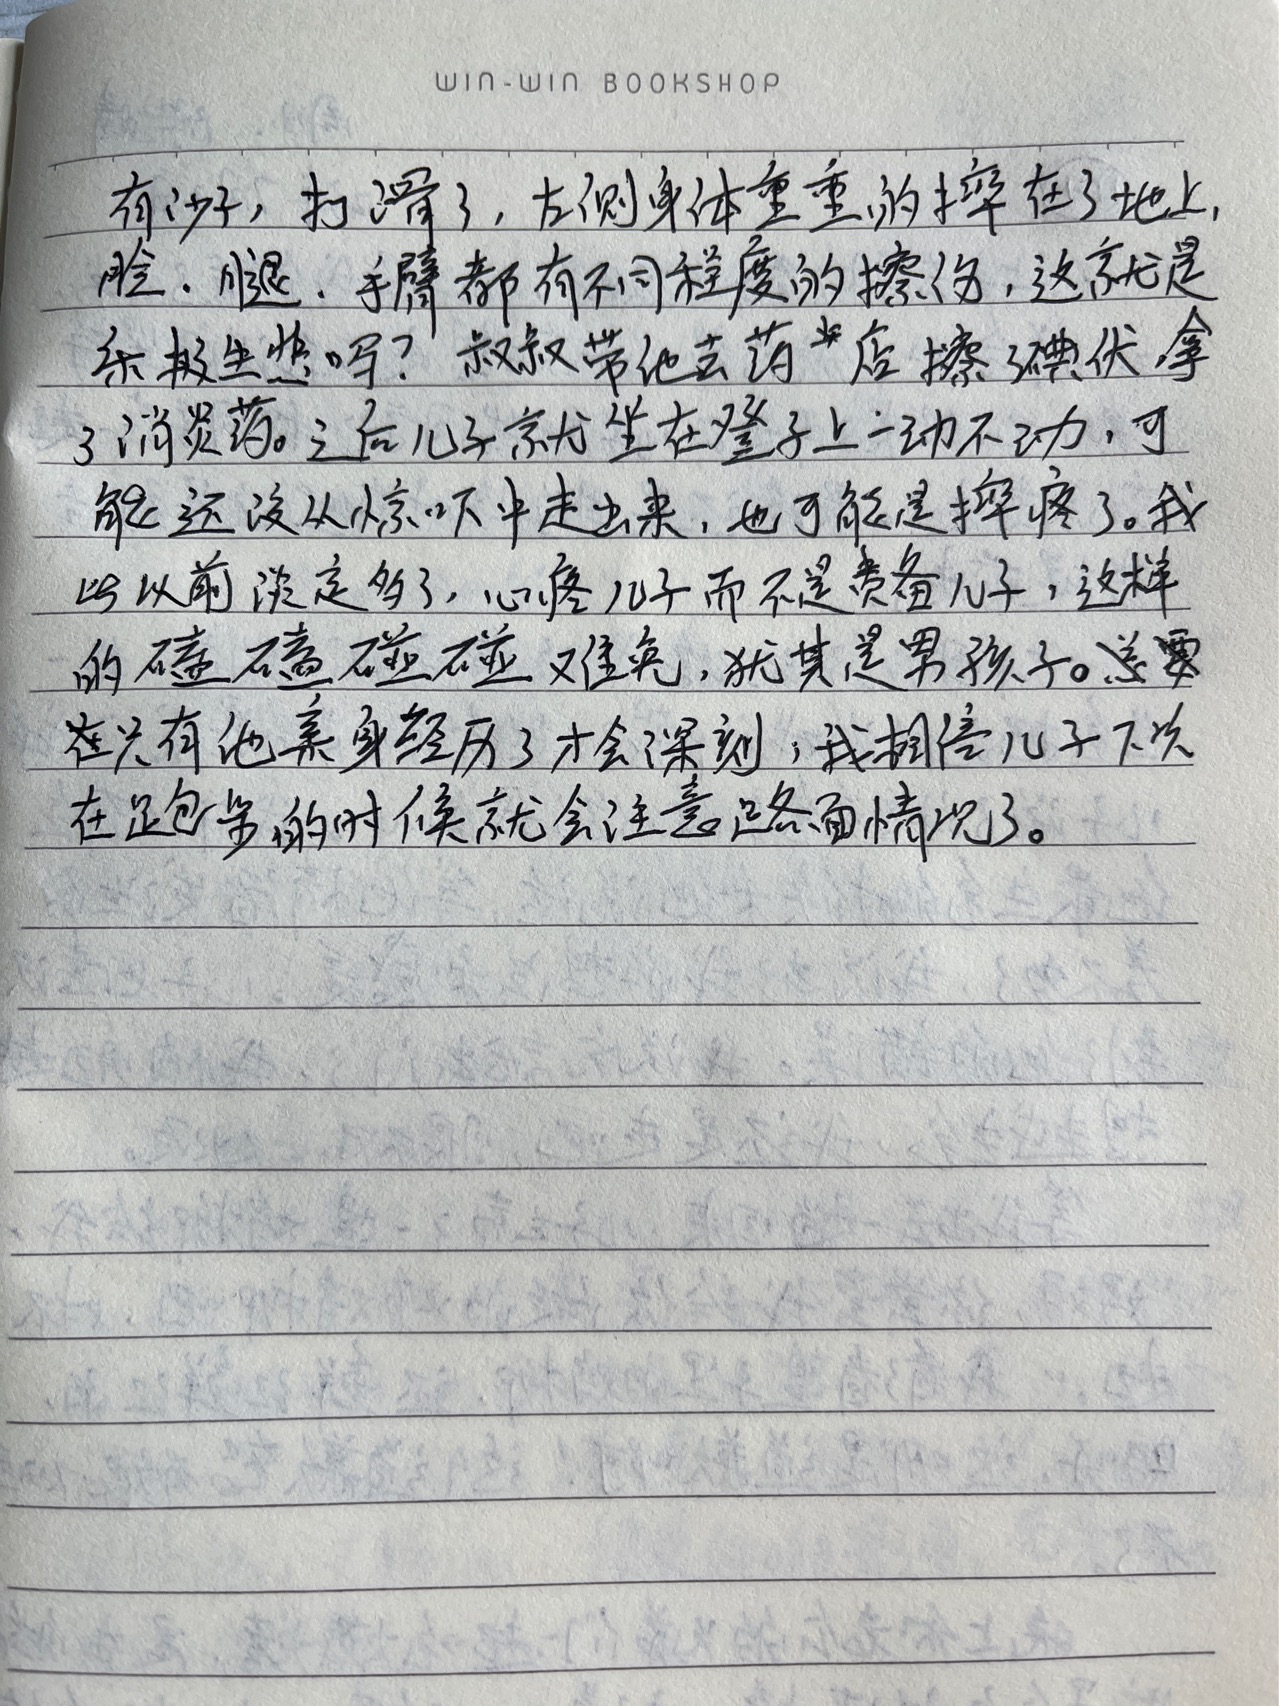 WIN-WIN BOOKSHOP
有沙子，打滑了，左侧身体重重的摔在了地上，
脸、腿、手臂都有不同程度的擦伤，这就是
乐极生悲吗？叔叔带他去药店擦了碘伏，拿
了消炎药。之后儿子就坐在凳子上一动不动，可
能还没从惊吓中走出来，也可能是摔疼了。我
比以前淡定多了，心疼儿子而不是责备儿子，这样
的磕磕碰碰难免，犹其是男孩子。总要
在只有他亲身经历了才会深刻，我相信儿子下次
在跑步的时候就会注意路面情况了。